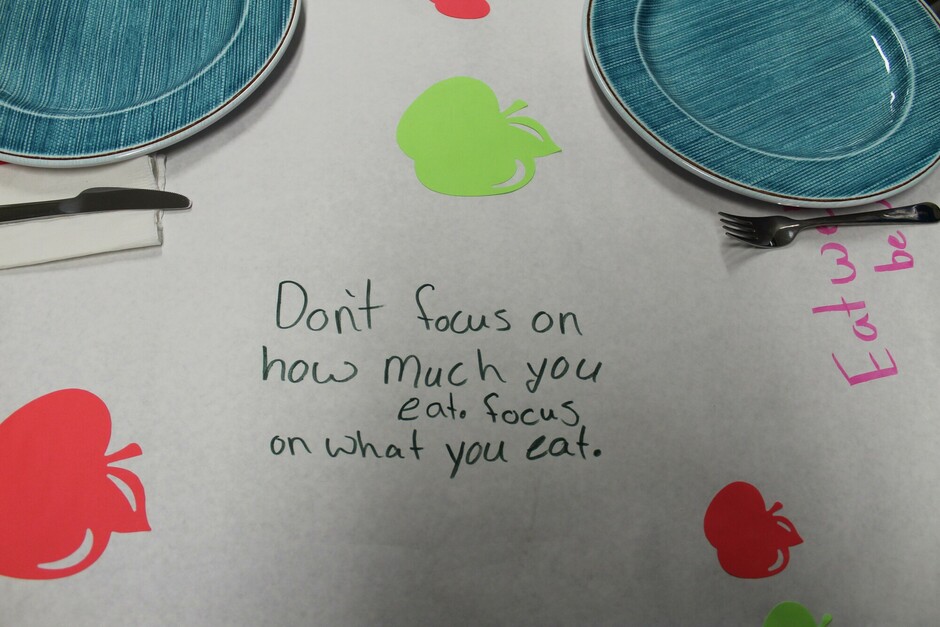 Don't focus on
how much you
eat. focus
on what you eat.
Eat
be